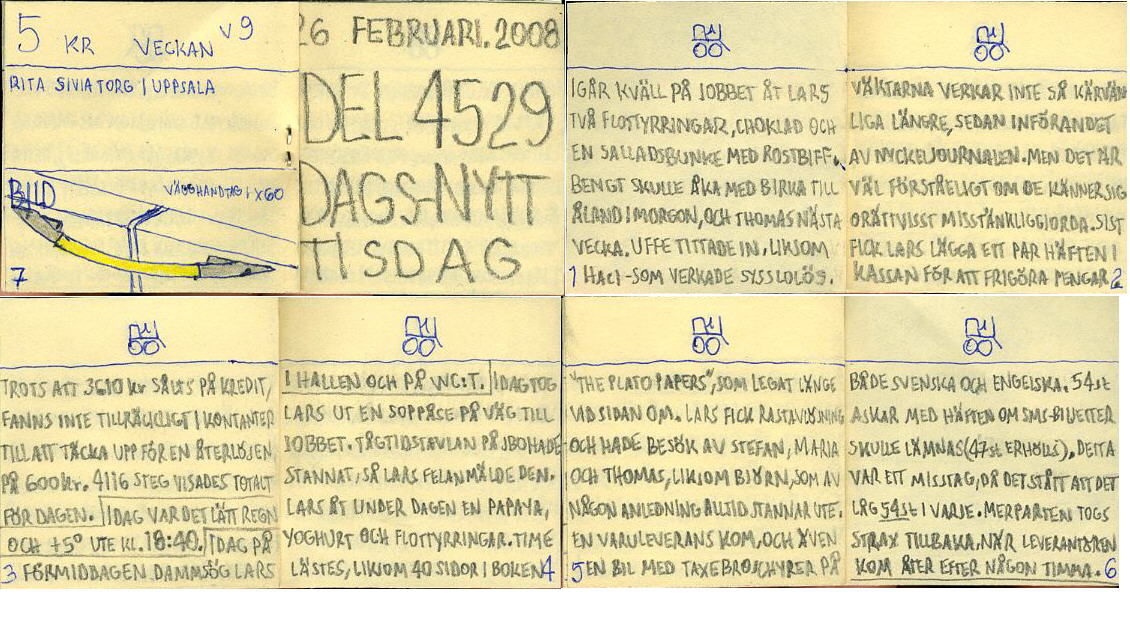 5 KR VECKAN V9
RITA SIVIA TORG I UPPSALA
BILD
VÄGGHANDTAG 1 X 60
7
26 FEBRUARI. 2008
DEL 4529
DAGS-NYTT
TISDAG
IGÅR KVÄLL PÅ JOBBET ÅT LARS
TVÅ FLOTTYRRINGAR, CHOKLAD OCH
EN SALLADSBUNKE MED ROSTBIFF.
BENGT SKULLE ÅKA MED BIRKA TILL
ÅLAND I MORGON, OCH THOMAS NÄSTA
VECKA. UFFE TITTADE IN, LIKSOM
1 HACI-SOM VERKADE SYSSLOLÖS.
VÄKTARNA VERKAR INTE SÅ KÄRVÄN
LIGA LÄNGRE, SEDAN INFÖRANDET
AV NYCKELJOURNALEN. MEN DET ÄR
VÄL FÖRSTÅELIGT OM DE KÄNNER SIG
ORÄTTVISST MISSTÄNKLIGGJORDA. SIST
FICK LARS LÄGGA ETT PAR HÄFTEN I
KASSAN FÖR ATT FRIGÖRA PENGAR 2
TROTS ATT 3610 kr SÅLTS PÅ KREDIT,
FANNS INTE TILLRÄCKLIGT I KONTANTER
TILL ATT TÄCKA UPP FÖR EN ÅTERLÖSEN
PÅ 600 kr. 4116 STEG VISADES TOTALT
FÖR DAGEN. IDAG VAR DET LÄTT REGN
OCH +5° UTE KL. 18:40. IDAG PÅ
3 FÖRMIDDAGEN DAMMSÖG LARS
I HALLEN OCH PÅ WC:T. IDAG TOG
LARS UT EN SOPPÅSE PÅ VÄG TILL
JOBBET. TÅGTIDSTAVLAN PÅ JBO HADE
STANNAT, SÅ LARS FELANMÄLDE DEN.
LARS ÅT UNDER DAGEN EN PAPAYA,
YOGHURT OCH FLOTTYRRINGAR. TIME
LÄSTES, LIKSOM 40 SIDOR I BOKEN 4
"THE PLATO PAPERS", SOM LEGAT LÄNGE
VID SIDAN OM. LARS FICK RASTAVLÖSNING
OCH HADE BESÖK AV STEFAN, MARIA
OCH THOMAS, LIKSOM BJÖRN, SOM AV
NÅGON ANLEDNING ALLTID STANNAR UTE.
EN VARULEVERANS KOM, OCH ÄVEN
5 EN BIL MED TAXEBROSCHYRER PÅ
BÅDE SVENSKA OCH ENGELSKA. 54 st
ASKAR MED HÄFTEN OM SMS-BILJETTER
SKULLE LÄMNAS (47 st ERHÖLLS). DETTA
VAR ETT MISSTAG, DÅ DET STÅTT ATT DET
LÅG 54 st I VARJE. MERPARTEN TOGS
STRAX TILLBAKA, NÄR LEVERANTÖREN
KOM ÅTER EFTER NÅGON TIMMA. 6